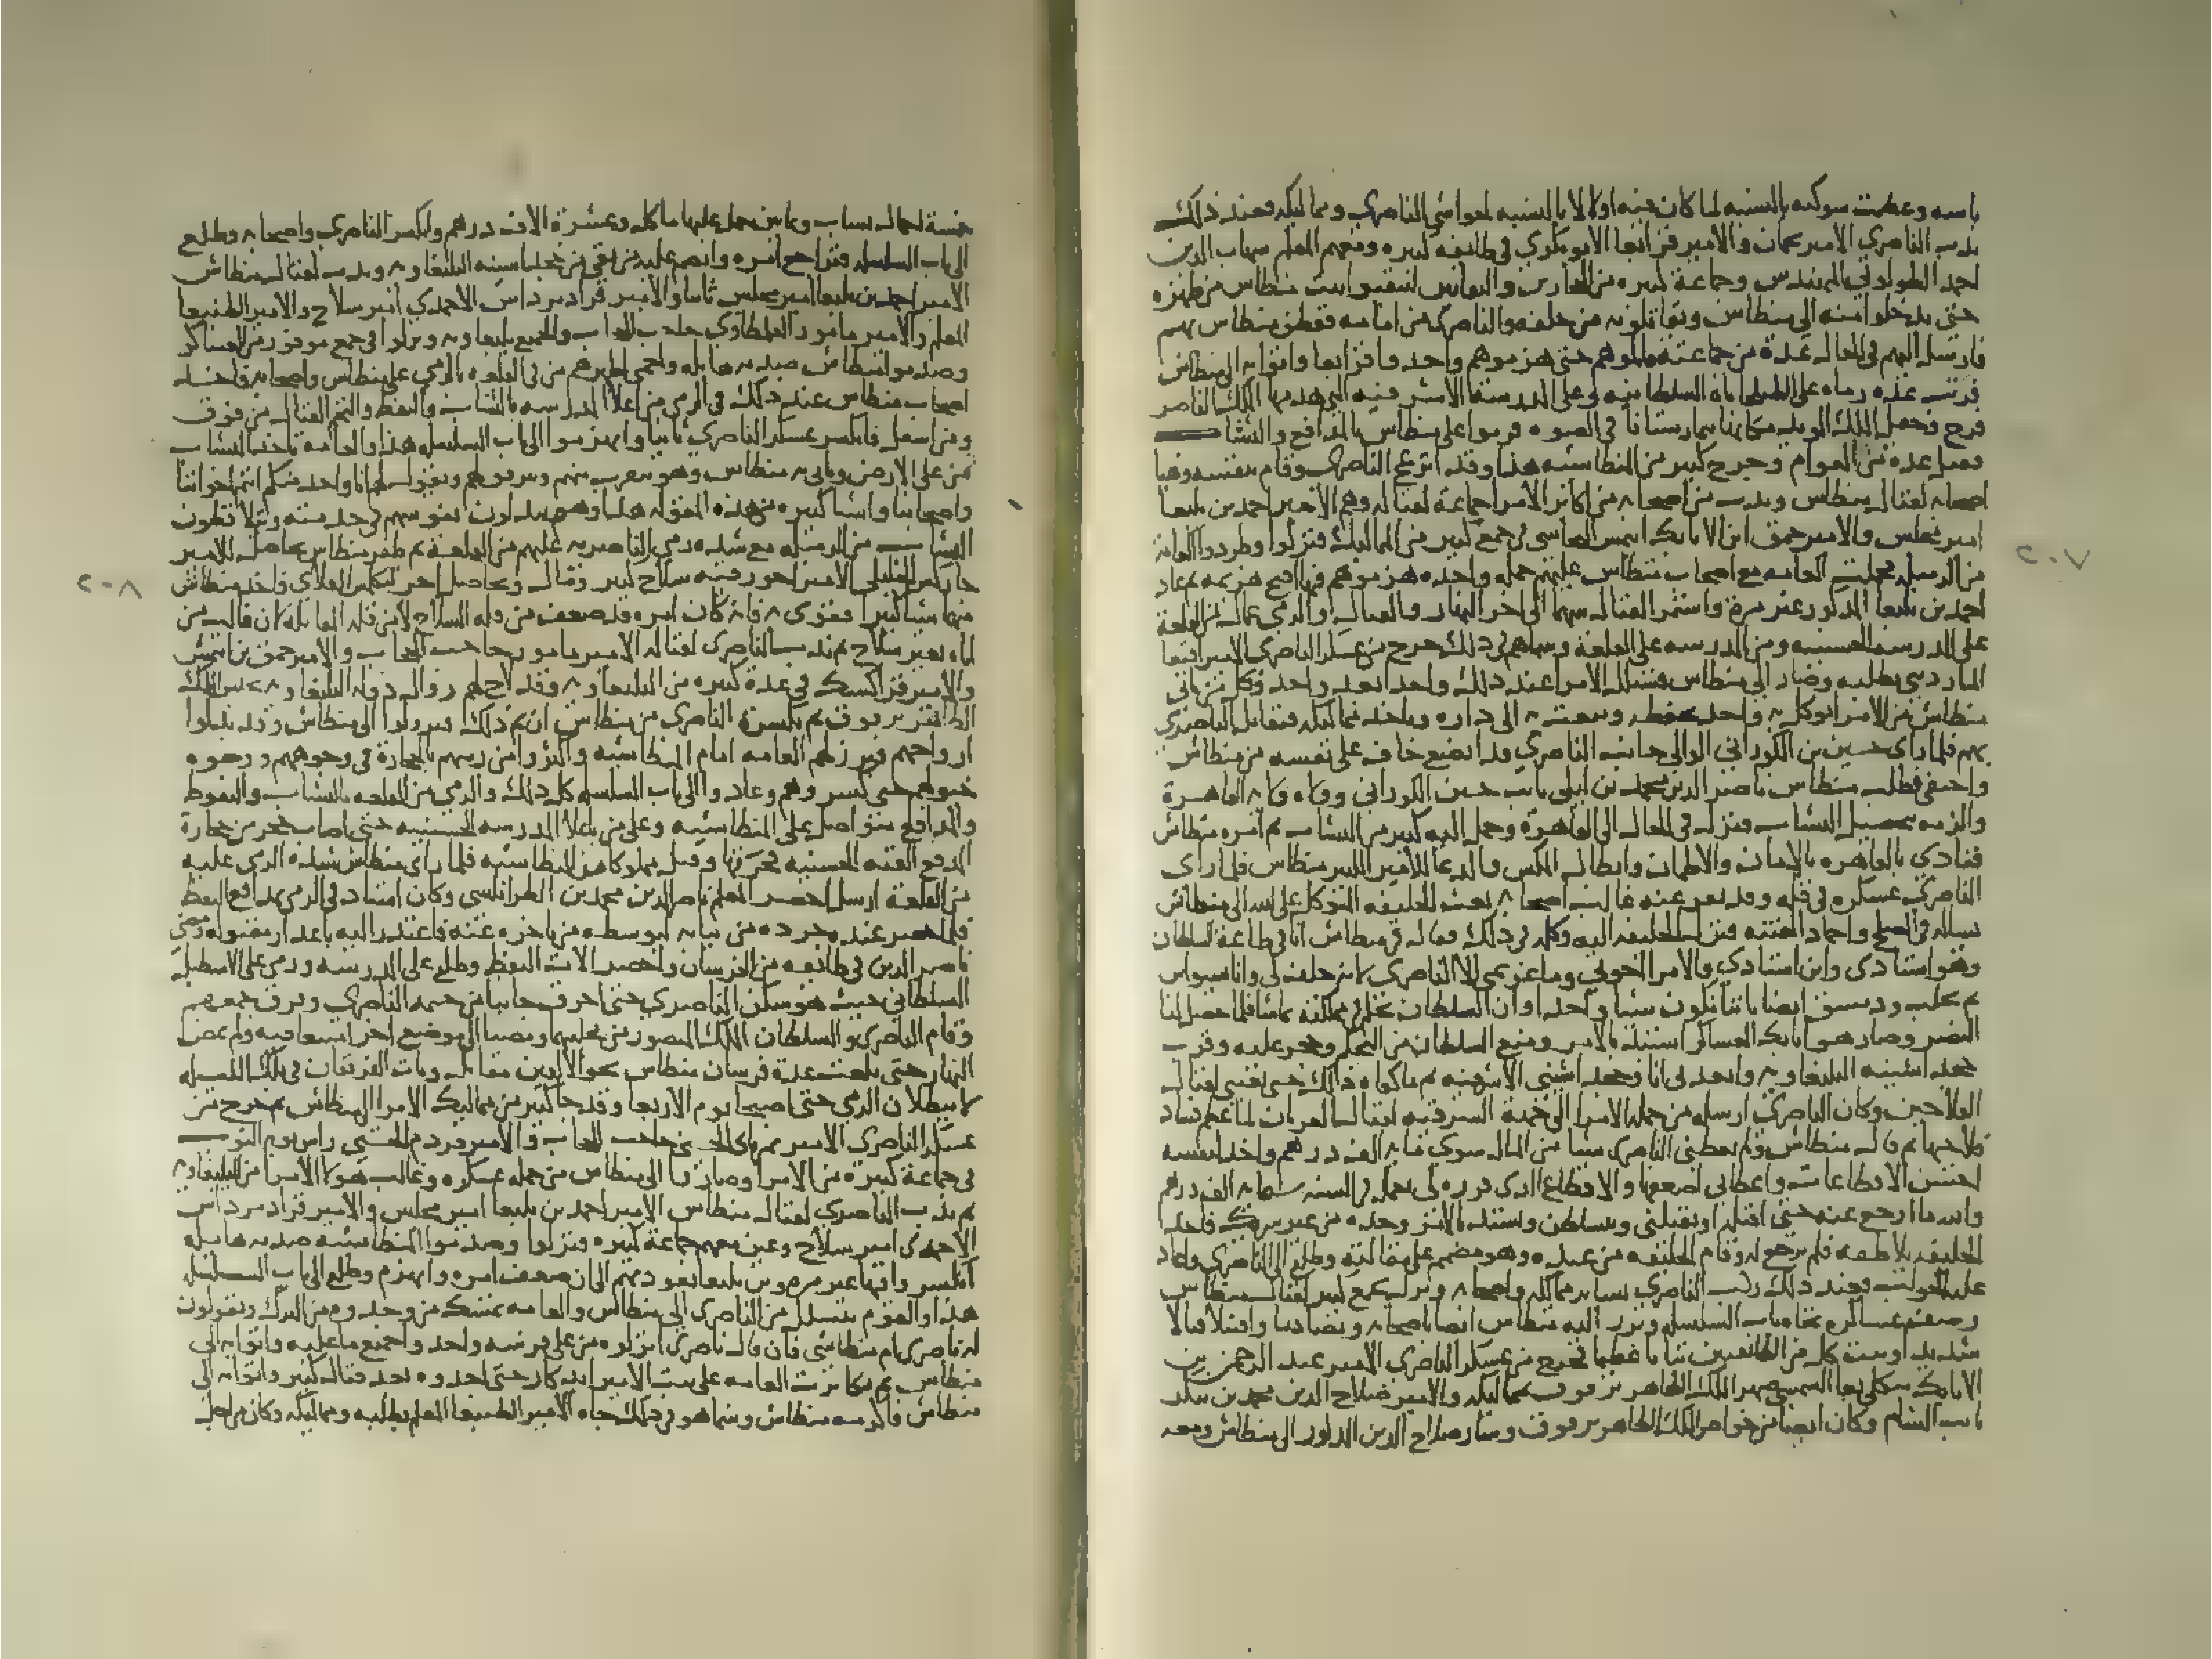 باسه وعظمت شوكته بالنسبة لما كان فيه اولا لا بالنسبة لحواشي الناصري ومماليكه فعند ذلك
ندب الناصري الامير بجمان والامير قرابغا الابوبكري في طايفة كبيرة ومعهم المعلم شهاب الدين
احمد الطولوني المهندس وجماعة كبيرة من الحجارين والنقابين لينقبوا بيت منطاش من ظهره
حتى يدخلوا منه الى منطاش ويقاتلونه من خلفه والناصري من امامه ففطن منطاش بهم
فارسل اليهم في الحال عدة من جماعته قاتلوهم حتى هزموهم واخذوا قرابغا واتوا به الى منطاش
فرتب عدة رماه على الطبلخاناه السلطانية وعلى المدرسة الاشرفية التي هدمها الملك الناصر
فرج وجعل الملك المويد مكانها بيمارستانا في الصوه فرموا على منطاش بالمدافع والنشاب
فقتل عدة من العوام وجرح كثير من المنطاشية هذا وقد انزعج الناصري وقام بنفسه وهيا
اصحابه لقتال منطاش وندب من اصحابه من اكابر الامرا جماعة لقتاله وهم الامير احمد بن يلبغا
امير مجلس والامير جمق ابن الاتابك ايتمش البجاسي في جمع كبير من المماليك فنزلوا وطردوا العامة
من الرميله فحملت العامة مع اصحاب منطاش عليهم حمله واحده هزموهم فيها اقبح هزيمه ثم عاد
احمد بن يلبغا المذكور غير مرة واستمر القتال بينهما الى اخر النهار والقتال والرمي عمال من القلعة
على المدرسة الحسنيه ومن المدرسه على القلعة وبينما هم في ذلك خرج من عسكر الناصري الامير اقبغا
المارديني بطلبه وصار الى منطاش فتسلل الامرا عند ذلك واحدا بعد واحد وكل من ياتي
منطاش من الامرا يوكل به واحد يحفظه ويبعث به الى داره وياخذ مماليكه فيقاتل الناصري
بهم فلما راى حسين بن الكوراني الوالي جانب الناصري قد اتضع خاف على نفسه من منطاش
واختفى فطلب منطاش ناصر الدين محمد بن ليلى نايب حسين الكوراني وولاه ولاية القاهرة
والزمه بتحصيل النشاب فنزل في الحال الى القاهرة وحمل اليه كثير من النشاب ثم امره منطاش
فنادى بالقاهره بالامان والاطمان وابطال المكس والدعا للامير الكبير منطاش فلما راى
الناصري عسكره في قله وقد نفر عنه غالب اصحابه بعث الخليفه المتوكل على الله الى منطاش
يساله في الصلح واخماد الفتنه فنزل الخليفه اليه وكلمه في ذلك فقال له منطاش انا في طاعة السلطان
وهو استادي وابن استادي والامرا اخوتي وما غريمي الا الناصري لانه حلف لي وانا بسيواس
ثم بحلب ودمشق ايضا باننا نكون شيا واحدا وان السلطان يحكم في مملكته بما شا فلما حصل لنا
النصر وصار هو اتابك العساكر استبد بالامر ومنع السلطان من التحكم وحجر عليه وقرب
خجداشيته اليلبغاويه وابعد لي انا وخجداشيتي الاشرفيه ثم ما كفاه ذلك حتى بعثني لقتال
الفلاحين وكان الناصري ارسله من جملة الامرا الى جهة الشرقيه لقتال العربان لما عظم فساد
فلاحيها ثم قال منطاش ولم يعطني الناصري شيا من المال سوى ماية الف درهم واخذ لنفسه
احسن الاقطاعات واعطاني اضعفها والاقطاع الذي قرره لي يعمل في السنه ستماية الف درهم
والله ما ارجع عنه حتى اقتله او يقتلني ويتسلطن ويستبد بالامر وحده من غير شريك فاخذ
الخليفه يلاطفه فلم يرجع له وقام الخليفه من عنده وهو مصمم على مقالته وطلع الى الناصري واعاد
عليه الجواب فعند ذلك ركب الناصري بساير مماليكه واصحابه ونزل بجمع كبير لقتال منطاش
وصف عساكره تجاه باب السلسله وبرز اليه منطاش ايضا باصحابه وتصادما واقتتلا قتالا
شديدا وثبت كل من الطايفتين ثباتا عظيما فخرج من عسكر الناصري الامير عبد الرحمن بن
الاتابك منكلي بغا الشمسي صهر الملك الظاهر برقوق بمماليكه والامير صلاح الدين محمد بن تنكز
نايب الشام وكان ايضا من خواص الملك الظاهر برقوق وسار صلاح الدين المذكور الى منطاش ومعه
خمسة احمال نشاب وثمانين حمل عليها ماكله وعشرة الاف درهم وانكسر الناصري واصحابه وطلع
الى باب السلسله فتراجع امره وانضم عليه من بقي من خجداشيته اليلبغاويه وندب لقتال منطاش
الامير احمد بن يلبغا امير مجلس ثانيا والامير قرادمرداش الاحمدي امير سلاح والامير الطنبغا
المعلم والامير مامور القلمطاوي حاجب الحجاب والجميع يلبغاويه ونزلوا في جمع موفور من العساكر
وصدموا منطاش صدمه هايله واحمى ظهرهم من في القلعه بالرمي على منطاش واصحابه فاخذ
اصحاب منطاش عند ذلك في الرمي من اعلا المدرسه بالنشاب والنفط والتحم القتال من فوق
ومن اسفل فانكسر عسكر الناصري ثانيا وانهزموا الى باب السلسله هذا والعامه تاخذ النشاب
من على الارض وياتي به منطاش وهو يتقرب منهم ويترفق لهم ويقول لهم انا واحد منكم انتم اخواننا
واصحابنا واشيا كثيره من هذه المقوله هذا وهم يبذلون نفوسهم في خدمته ويتلاقطون
النشاب من الرميله مع شدة رمي الناصريه عليهم من القلعة ثم ظفر منطاش بحاصل للامير
جاركس الخليلي الامير اخور وفيه سلاح كثير ومال وبحاصل اخر لبكلمش العلاي فاخذ منطاش
منها شيا كثيرا فقوى به فانه كان امره قد ضعف من قله السلاح لا من قله المقاتله لان غالب من
اتاه بغير سلاح ثم ندب الناصري لقتاله الامير مامور حاجب الحجاب والامير جمق بن ايتمش
والامير قراكسك في عدة كبيره من اليلبغاويه وقد لاح لهم زوال دوله اليلبغاويه بحبس الملك
الظاهر برقوق ثم بكسرة الناصري من منطاش ان تم ذلك فنزلوا الى منطاش وقد بذلوا
ارواحهم فبرز لهم العامه امام المنطاشيه واكثروا من رميهم بالحجارة في وجوههم ووجوه
خيولهم حتى كسروهم وعادوا الى باب السلسله كل ذلك والرمي من القلعه بالنشاب والنفوط
والمدافع متواصل على المنطاشيه وعلى من باعلا المدرسه الحسنيه حتى اصاب حجر من حجارة
المدفع القبة الحسنيه فخرقها وقتل مملوكا من المنطاشيه فلما راى منطاش شدة الرمي عليه
من القلعة ارسل احضر المعلم ناصر الدين محمد بن الطرابلسي وكان استاد في الرمي بمدافع النفط
فلما حضر عنده جرده من ثيابه ليوسطه من تاخره عنه فاعتذر اليه باعذار مقبوله ومضى
ناصر الدين في طايفه من الفرسان واحضر الات النفط وطلع على المدرسه ورمى على الاسطبل
السلطاني حيث هو سكن الناصري حتى احرق جانبا من خيمه الناصري وفرق جمعهم
وقام الناصري والسلطان الملك المنصور من مجلسهما ومضيا الى موضع اخر امتنعا فيه ولم يمض
النهار حتى بلغت عدة فرسان منطاش نحو الالفين مقاتل وبات الفريقان في تلك الليله
لا يبطلان الرمي حتى اصبحا يوم الاربعا وقد جا كثير من مماليك الامرا الى منطاش ثم خرج من
عسكر الناصري الامير تمرباي الحسني حاجب الحجاب والامير قردم الحسني راس نوبة النوب
في جماعة كبيرة من الامرا وصاروا الى منطاش من جمله عسكره وغالب هولا الامرا من اليلبغاويه
ثم ندب الناصري لقتال منطاش الامير احمد بن يلبغا امير مجلس والامير قرادمرداش
الاحمدي امير سلاح وعين معهم جماعة كبيره فنزلوا وصدموا المنطاشيه صدمه هايله
انكسروا فيها غير مره وبن يلبغا يعود بهم الى ان ضعف امره وانهزم وطلع الى باب السلسله
هذا والقوم يتسلل من الناصري الى منطاش والعامه تمسك من وجدوه من الترك ويقولون
له ناصري ام منطاشي فان قال ناصري انزلوه من على فرسه واخذوا جميع ما عليه واتوا به الى
منطاش ثم تكاثرت العامه على بيت الامير ايدكار حتى اخذوه بعد قتال كبير واتوا به الى
منطاش فاكرمه منطاش وبينما هو في ذلك جاه الامير الطنبغا المعلم بطلبه ومماليكه وكان من اجل
٢٠٧
٢٠٨